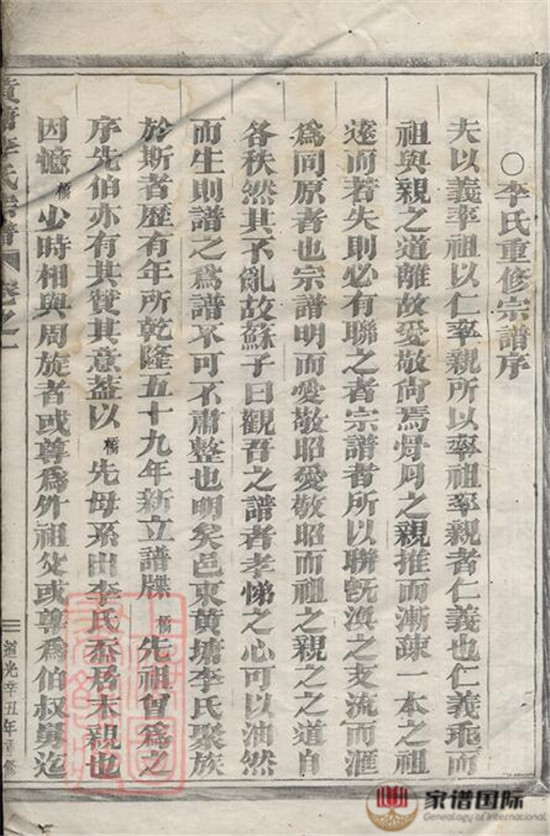 ○李氏重修宗譜序
夫以義率祖以仁率親所以率祖率親者仁義也仁義乖而
祖與親之道離故愛敬尙焉骨肉之親推而漸疎一本之祖
遠而若失則必有聯之者宗譜者所以聯旣渙之支流而滙
爲同原者也宗譜明而愛敬昭愛敬昭而祖之親之之道自
各秩然其不亂故蘇子曰觀吾之譜者孝悌之心可以油然
而生則譜之爲譜不可不肅整也明矣邑東黃塘李氏聚族
於斯者歷有年所乾隆五十九年新立譜牒橋先祖曾爲之
序先伯亦有其贊其意葢以橋先母系出李氏忝居末親也
因憶橋少時相與周旋者或尊爲外祖父或尊爲伯叔舅迄
黃塘李氏宗譜 卷之一
道光辛丑年重修
家谱国际
Genealogy of International